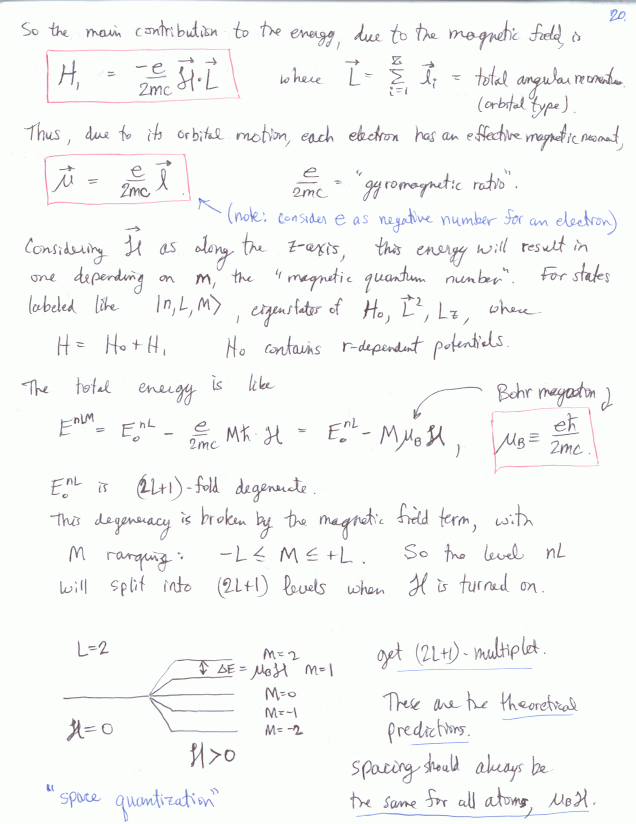 20.
So the main contribution to the energy, due to the magnetic field, is
H₁ = -e/2mc ℋ⃗·L⃗ where L⃗ = Σ_{i=1}^{Z} l⃗ᵢ = total angular momentum
(orbital type).
Thus, due to its orbital motion, each electron has an effective magnetic moment,
μ⃗ = e/2mc l⃗. e/2mc = "gyromagnetic ratio".
(note: consider e as negative number for an electron)
Considering ℋ⃗ as along the z-axis, this energy will result in
one depending on m, the "magnetic quantum number". For states
labeled like |n,L,M⟩, eigenstates of H₀, L⃗², L_z, where
H = H₀ + H₁ H₀ contains r-dependent potentials.
The total energy is like Bohr magneton
E^{nLM} = E₀^{nL} - e/2mc Mħ·ℋ = E₀^{nL} - Mμ_Bℋ, μ_B ≡ eħ/2mc.
E₀^{nL} is (2L+1)-fold degenerate.
This degeneracy is broken by the magnetic field term, with
M ranging: -L ≤ M ≤ +L. So the level nL
will split into (2L+1) levels when ℋ is turned on.
L=2 M=2 get (2L+1)-multiplet.
ΔE = μ_Bℋ M=1
M=0 These are the theoretical
M=-1 predictions.
ℋ=0 M=-2
ℋ>0 spacing should always be
"space quantization" the same for all atoms, μ_Bℋ.